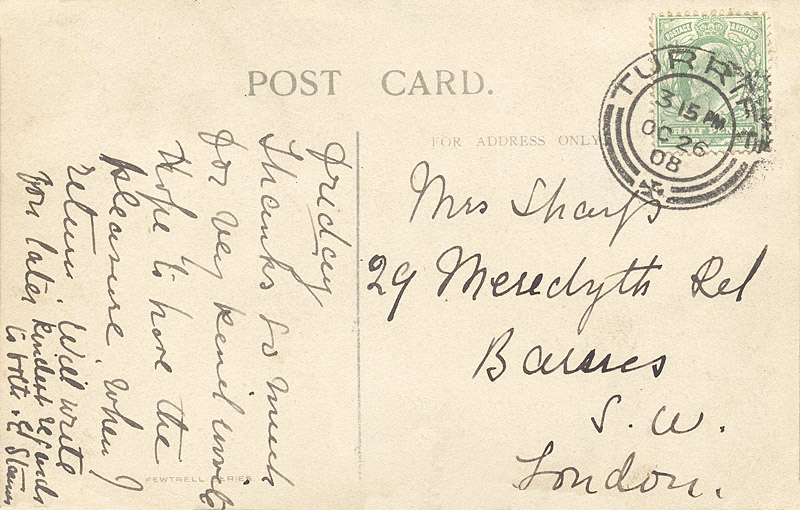 POST CARD.
FOR ADDRESS ONLY
POSTAGE
HALF PENNY
TURR
3 15 PM
OC 26
08
Friday
Thanks so much
for very kind invite
Hope to have the
pleasure when I
return. Will write
you later kindest regards
to both
Mrs Sharp
29 Meredyth Rd
Barnes
S. W.
London.